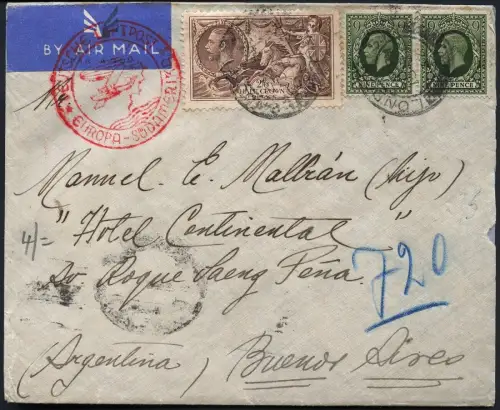 BY AIR MAIL
DEUTSCHE LUFTPOST
EUROPA-SÜDAMERIKA
HALF CROWN
NINEPENCE
NINEPENCE
Manuel E. Malbrán (hijo)
"Hotel Continental"
Roque Saeng Peña.
4/=
720
(Argentina) Buenos Aires